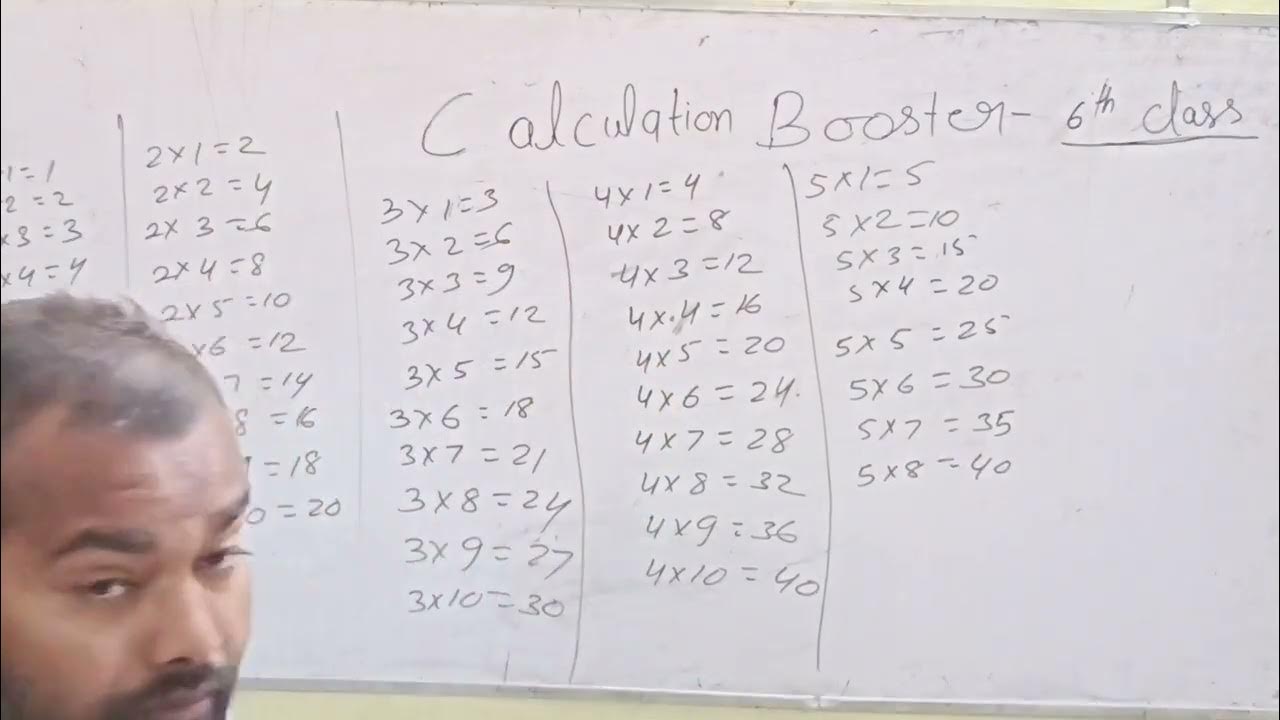 Calculation Booster- 6th class
1=1
2=2
x3=3
x4=4
2x1=2
2x2=4
2x3=6
2x4=8
2x5=10
x6=12
7=14
8=16
=18
0=20
3x1=3
3x2=6
3x3=9
3x4=12
3x5=15
3x6=18
3x7=21
3x8=24
3x9=27
3x10=30
4x1=4
4x2=8
4x3=12
4x.4=16
4x5=20
4x6=24.
4x7=28
4x8=32
4x9=36
4x10=40
5x1=5
5x2=10
5x3=15
5x4=20
5x5=25
5x6=30
5x7=35
5x8=40